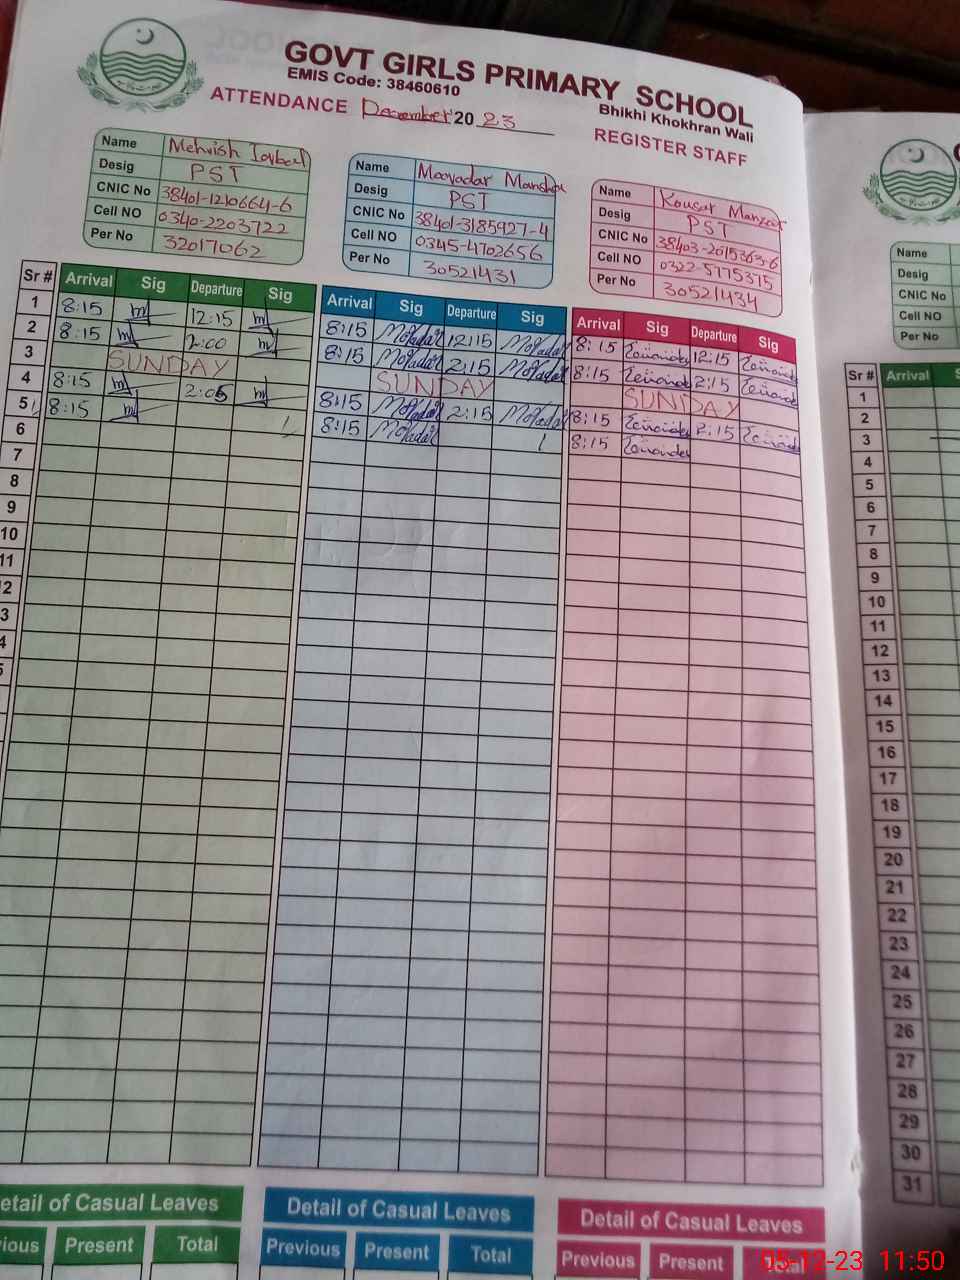 GOVT GIRLS PRIMARY SCHOOL
EMIS Code: 38460610
Bhikhi Khokhran Wali
ATTENDANCE December 2023
REGISTER STAFF
Name Mehvish Iqbal
Desig PST
CNIC No 38401-1210664-6
Cell NO 0340-2203722
Per No 32017062
Name
Desig PST
CNIC No 38401-3185927-4
Cell NO 0345-4702656
Per No 30521431
Name Kousar
Desig PST
CNIC No 38403-2015363-6
Cell NO 0322-5775375
Per No 30521434
Sr # Arrival Sig Departure Sig Arrival Sig Departure Sig Arrival Sig Departure Sig
1 8:15 12:15 8:15 12:15 8:15 12:15
2 8:15 2:00 8:15 2:15 8:15 2:15
3 SUNDAY SUNDAY SUNDAY
4 8:15 2:05 8:15 2:15 8:15 2:15
5 8:15 8:15 8:15
6
7
8
9
10
11
2
3
4
5
etail of Casual Leaves
ious Present Total
Detail of Casual Leaves
Previous Present Total
Detail of Casual Leaves
Previous Present Total
Name
Desig
CNIC No
Cell NO
Per No
Sr # Arrival
1
2
3
4
5
6
7
8
9
10
11
12
13
14
15
16
17
18
19
20
21
22
23
24
25
26
27
28
29
30
31
05-12-23 11:50